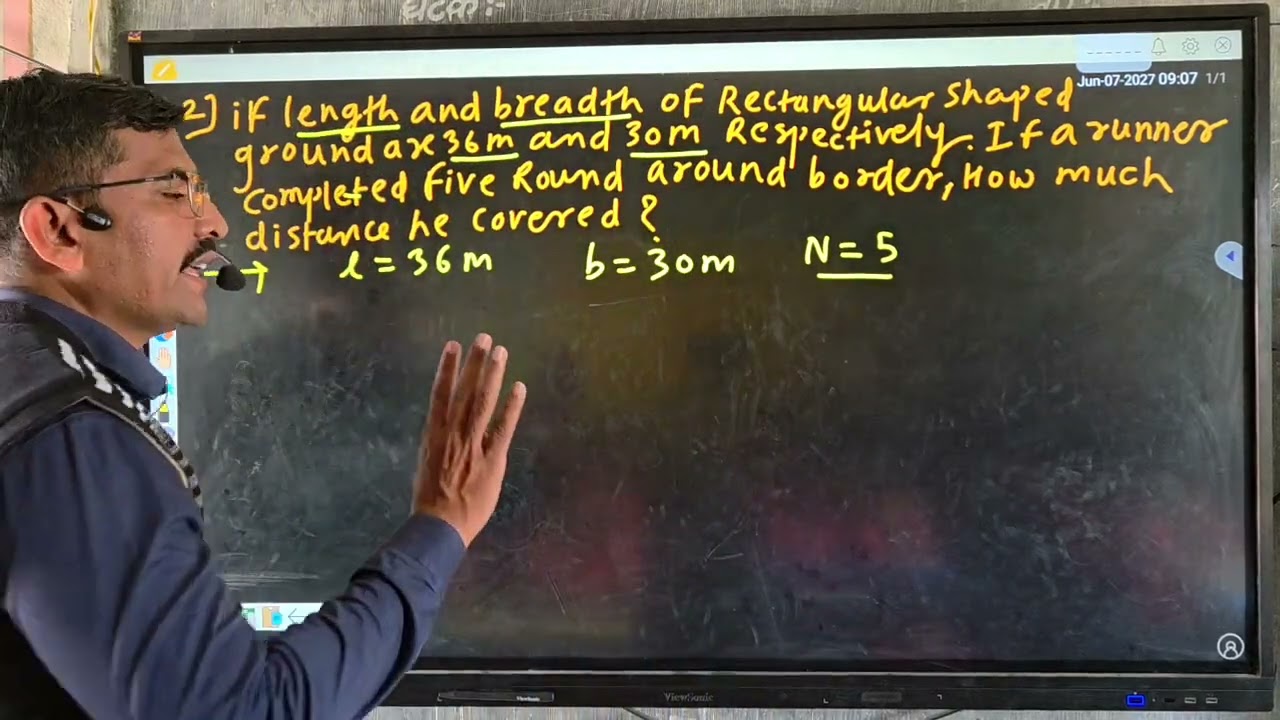 घटक :-
Jun-07-2027 09:07 1/1
2] if length and breadth of Rectangular shaped
ground are 36m and 30m Respectively. If a runner
completed five Round around border, How much
distance he covered ?
→ l = 36 m b = 30 m N = 5
ViewSonic
ViewSonic